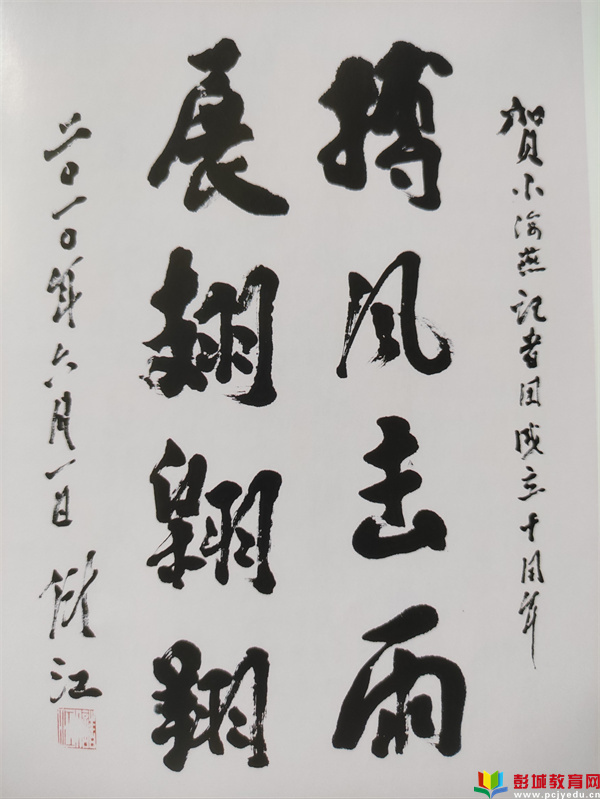 贺小海燕记者团成立十周年
搏风击雨
展翅翱翔
二〇一〇年六月一日
储江
彭城教育网
www.pcjyedu.cn